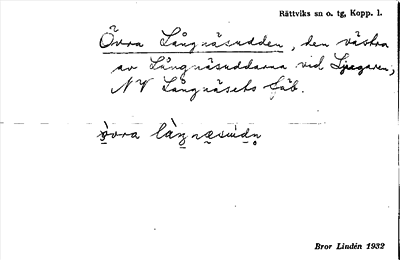 Rättviks sn o. tg, Kopp. l.
Övra Långnäsudden, den västra
av Långnäsuddarna vid Ljugaren;
NV Långnäsets fäb.
Bror Lindén 1932